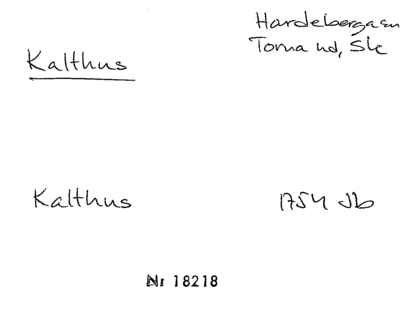 Kalthus
Hardebergasn
Torna hd, Sk
Kalthus
1754 Jb
Nr 18218